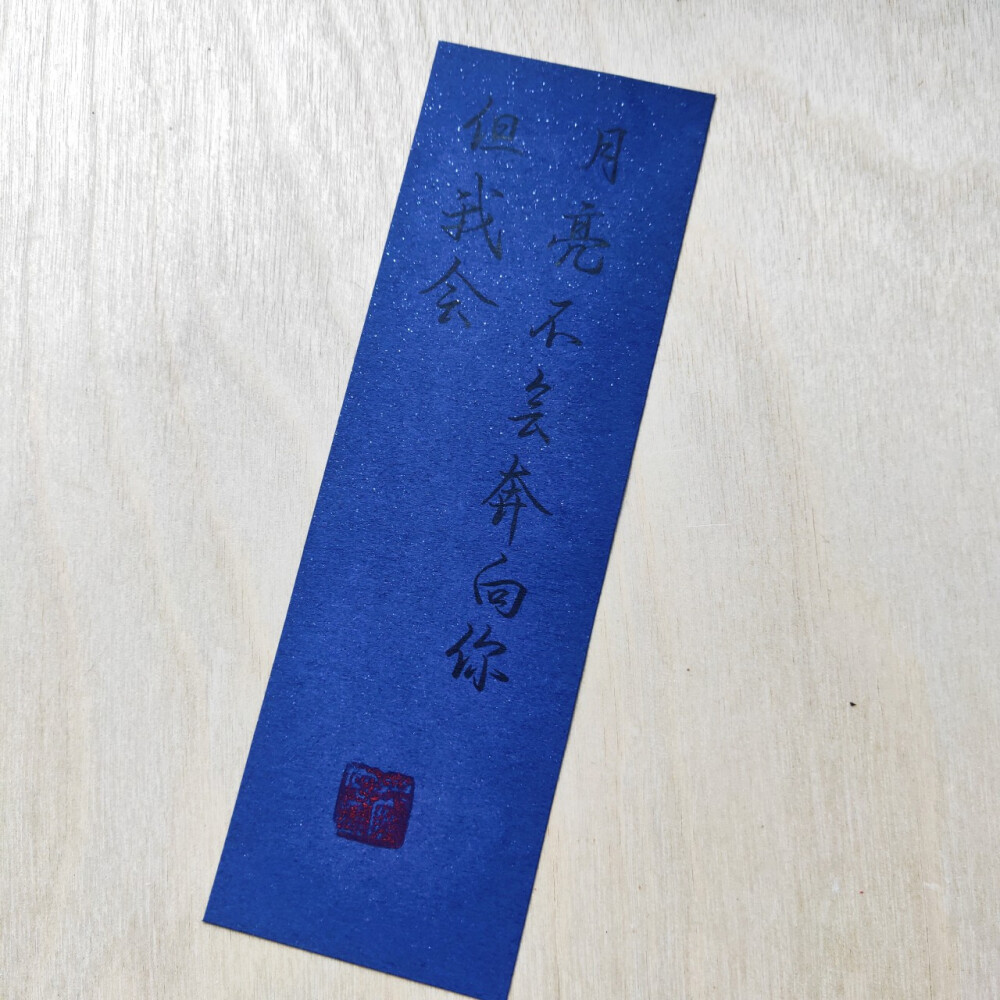 月亮不会奔向你
但我会